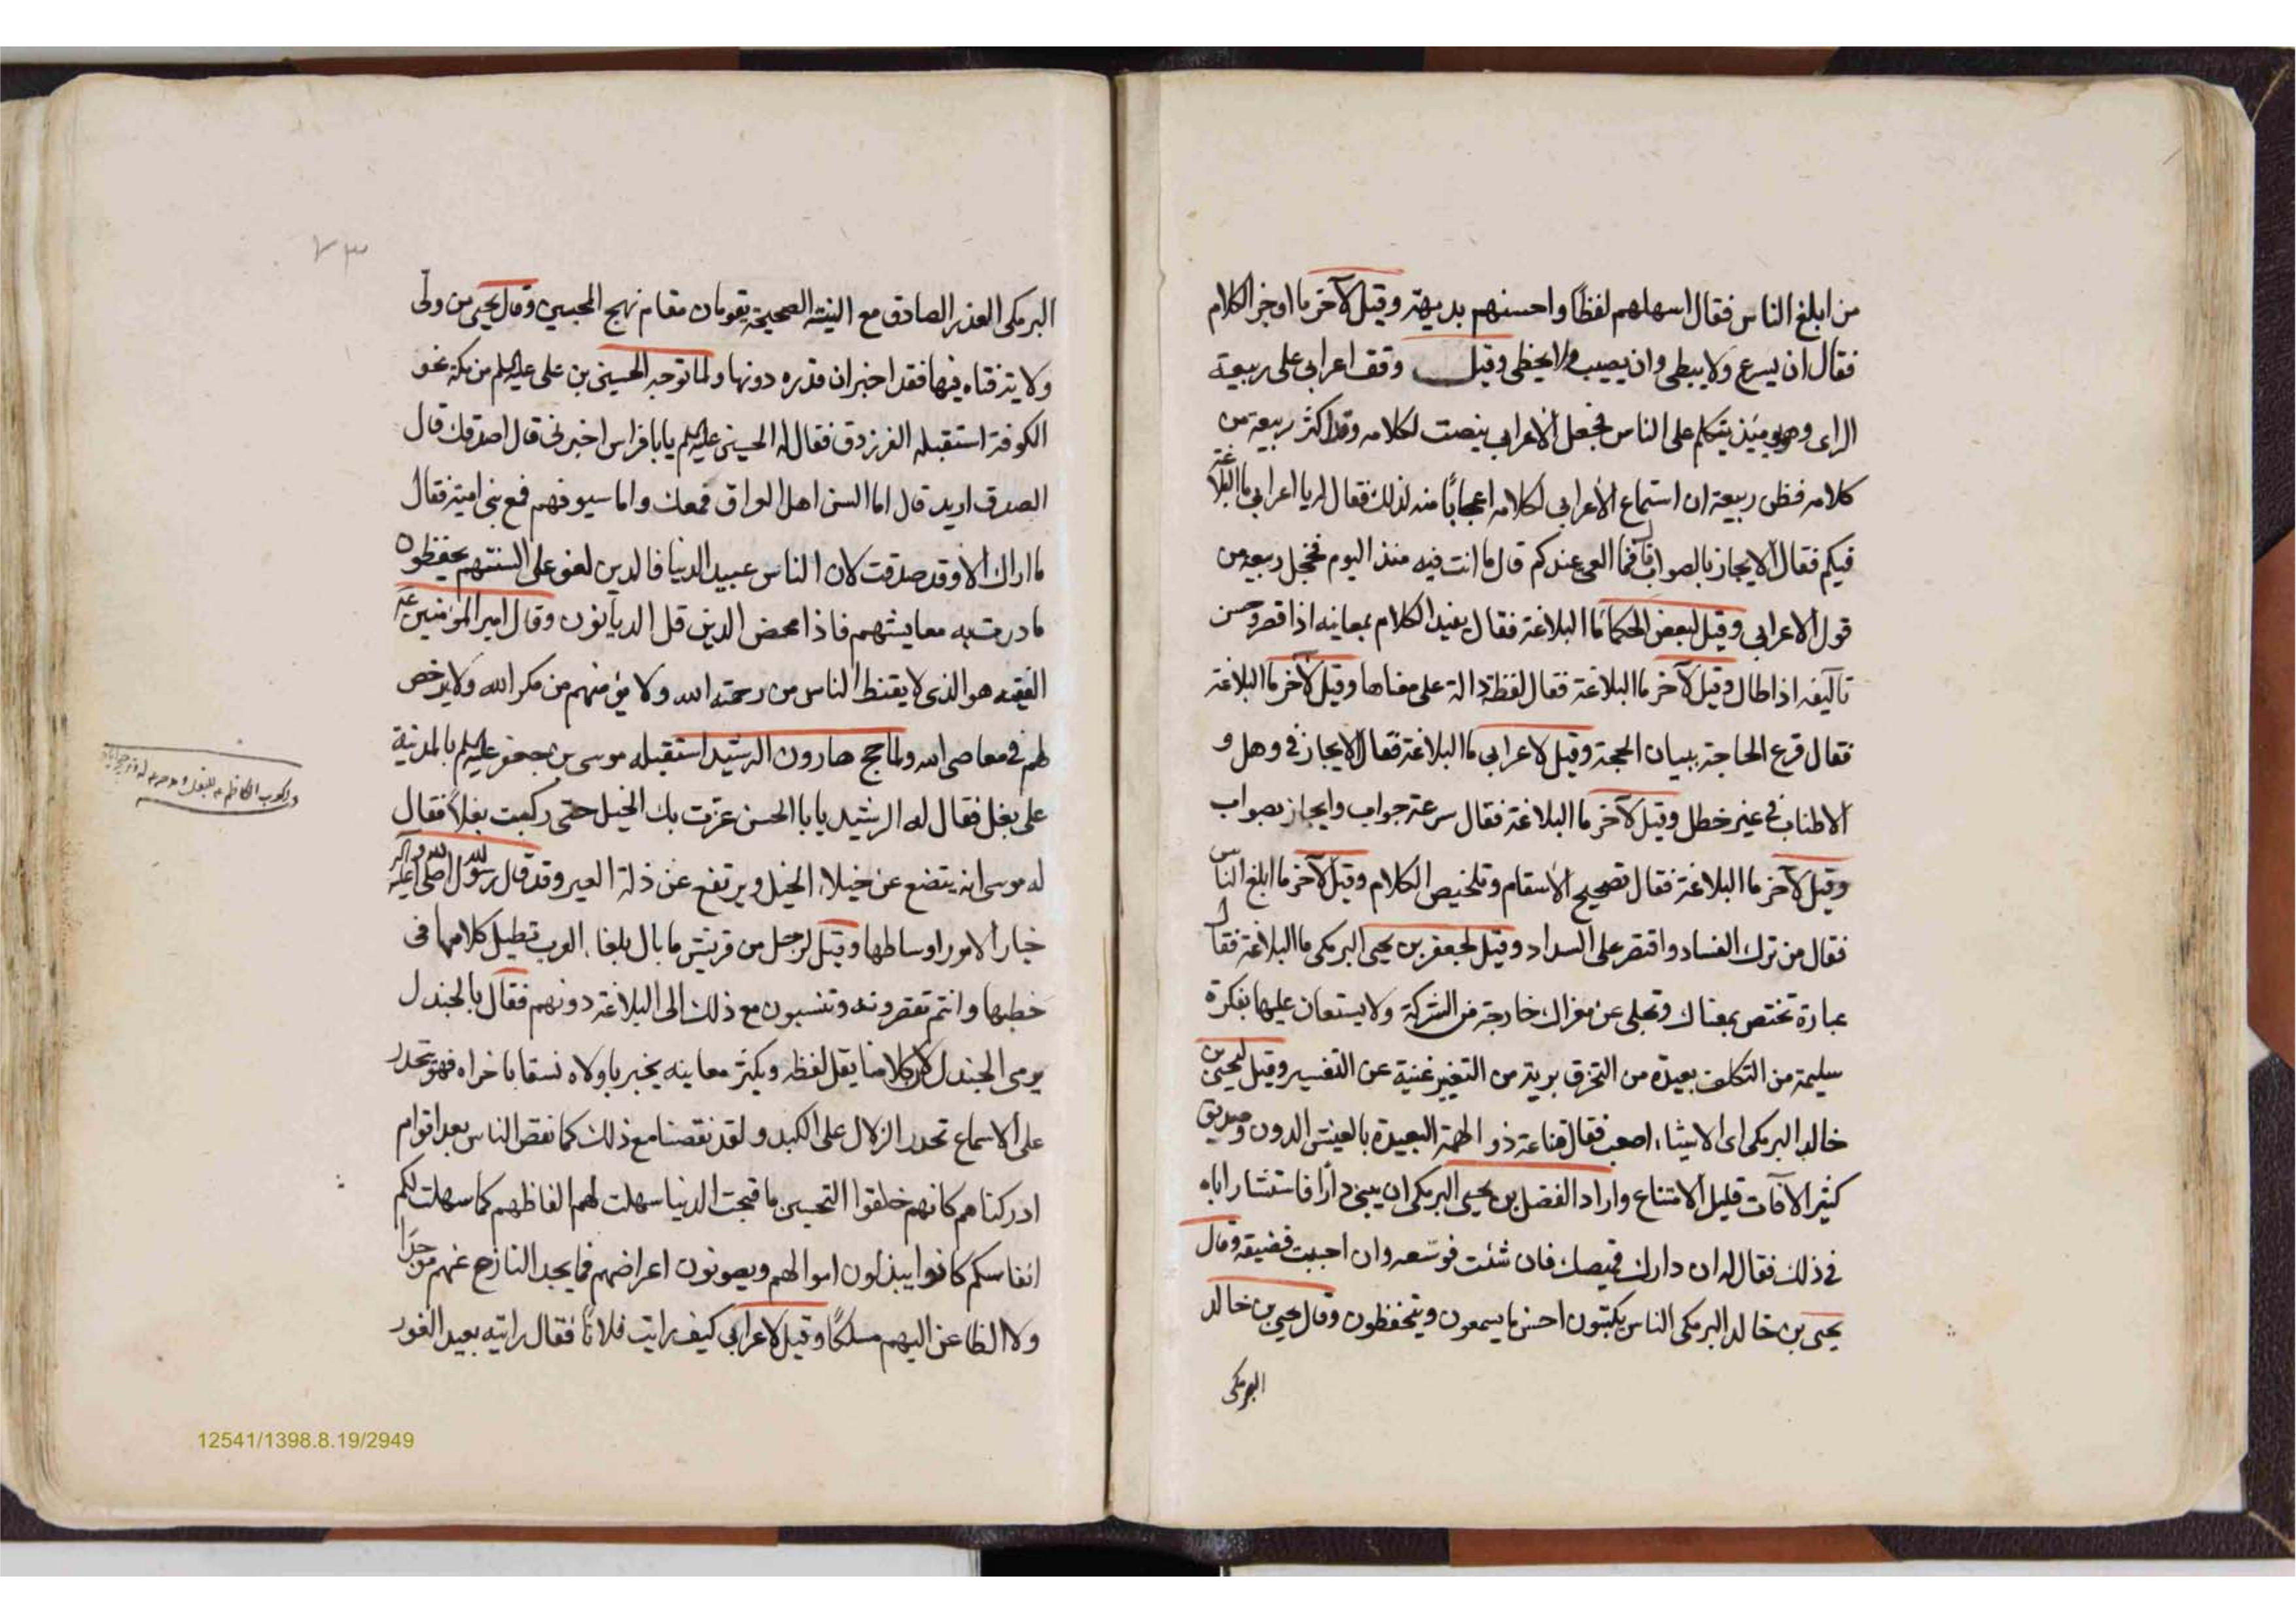 من ابلغ الناس فقال اسهلهم لفظًا واحسنهم بديهة وقيل لآخر ما اوجز الكلام
فقال ان يسرع ولا يبطى وان يصيب ولا يخطى وقيل وقف اعرابي على ربيعة
الراى وهو يومئذ يتكلم على الناس فجعل الاعرابي ينصت لكلامه وقد اكثر ربيعة من
كلامه فظن ربيعة ان استماع الأعرابي لكلامه اعجابًا منه لذلك فقال له يا اعرابي ما البلاغة
فيكم فقال الايجاز بالصواب قال فما العي عندكم قال ما انت فيه منذ اليوم فخجل ربيعة من
قول الاعرابي وقيل لبعض الحكما ما البلاغة فقال يفيد الكلام بمعانيه اذا قصر وحسن
تآليفه اذا طال وقيل لآخر ما البلاغة فقال لفظة دالة على معناها وقيل لآخر ما البلاغة
فقال قرع الحاجة ببيان الحجة وقيل لاعرابي ما البلاغة فقال الايجاز في وهل و
الاطناب في غير خطل وقيل لآخر ما البلاغة فقال سرعة جواب وايجاز بصواب
وقيل لآخر ما البلاغة فقال تصحيح الأسقام وتلخيص الكلام وقيل لآخر ما ابلغ الناس
فقال من ترك الفساد واقتصر على السداد وقيل لجعفر بن يحيى البرمكى ما البلاغة فقال
عبارة تختص بمعناك وتجلى عن مغزاك خارجة من الشركة ولا يستعان عليها بفكرة
سليمة من التكلف بعيدة من التخرق برية من التغيير غنية عن التفسير وقيل ليحيى بن
خالد البرمكى اى الاشياء اصعب فقال قناعة ذو الهمة البعيدة بالعيش الدون وصديق
كثير الآفات قليل الامتناع واراد الفضل بن يحيى البرمكى ان يبنى دارًا فاستشار اباه
في ذلك فقال له ان دارك قميصك فان شئت فوسّعه وان احببت فضيقه وقال
يحيى بن خالد البرمكى الناس يكتبون احسن ما يسمعون ويتحفظون وقال يحيى بن خالد
البرمكى
٧٣
البرمكى العذر الصادق مع النية الصحيحة يقومان مقام نهج المحبين وقال يحيى من ولى
ولاية فتاه فيها فقد اخبر ان قدره دونها ولما توجه الحسين بن على عليه السلم من مكة نحو
الكوفة استقبله الفرزدق فقال له الحسين عليه السلم يا با فراس اخبرنى قال اصدقك قال
الصدق اريد قال اما السن اهل العراق فمعك واما سيوفهم فمع بنى امية فقال
ما اراك الا وقد صدقت لان الناس عبيد الدنيا فالدين لغو على السنتهم يحفظون
ما درت به معايشهم فاذا محض الدين قل الديانون وقال امير المؤمنين ع
الفقيه هو الذى لا يقنط الناس من رحمة الله ولا يؤمنهم من مكر الله ولا يرخص
لهم في معاصى الله ولما حج هارون الرشيد استقبله موسى بن جعفر عليه السلم بالمدينة
على بغل فقال له الرشيد يا با الحسن عزت بك الخيل حتى ركبت بغلاً فقال
له موسى انه يتضع عن خيلاء الخيل ويرتفع عن ذلة العير وقد قال رسول الله صلى الله عليه وآله
خيار الامور اوساطها وقيل لرجل من قريش ما بال بلغاء العرب تطيل كلامها فى
خطبها وانتم تقصرونه وتنسبون مع ذلك الى البلاغة دونهم فقال بالجندل
يرمى الجندل لان كلامنا يقل لفظه ويكثر معانيه يخبر باولاه نسقا باخراه فهو يتحدر
على الاسماع تحدر الزلال على الكبد و لقد نقصنا مع ذلك كما نقص الناس بعد اقوام
ادركناهم كانهم خلقوا التحسين ما قبحت الدنيا سهلت لهم الفاظهم كما سهلت لكم
انفاسكم كانوا يبذلون اموالهم ويصونون اعراضهم فما يجد النازح عنهم موجدًا
ولا الظاعن اليهم مسلكًا وقيل لاعرابي كيف رايت فلانًا فقال رايته بعيد الغور
12541/1398.8.19/2949